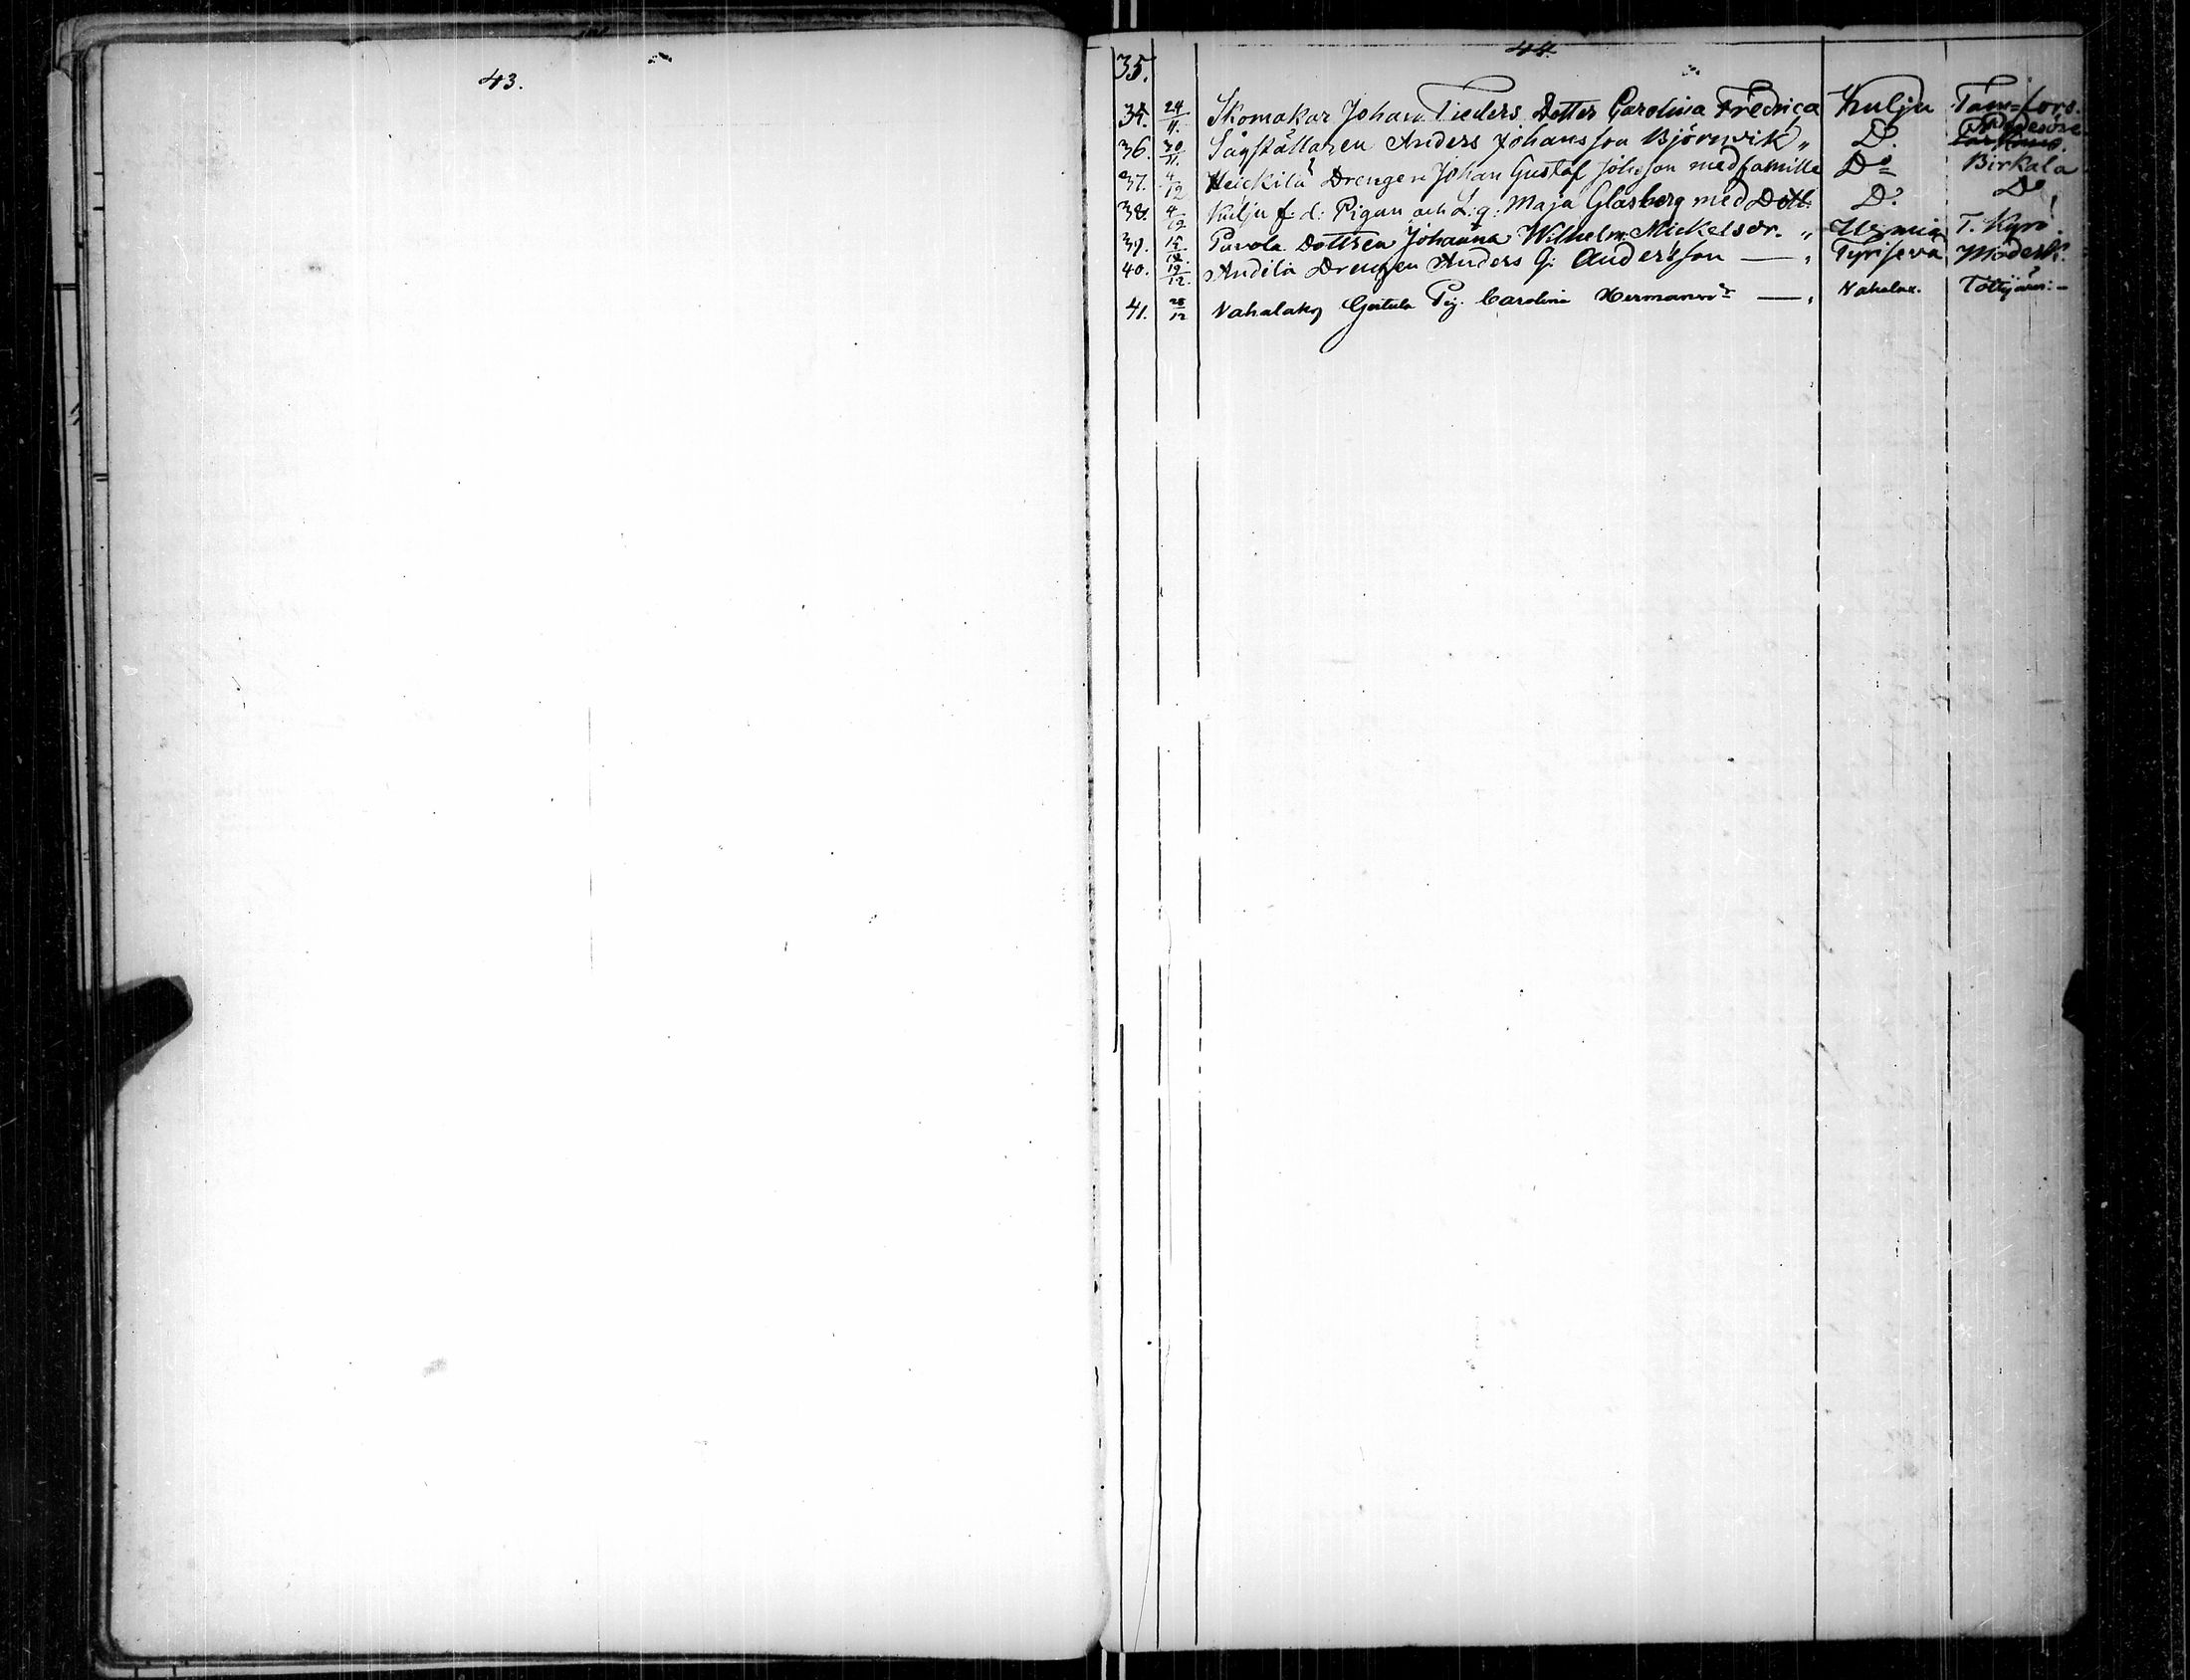 43.
44.
35.
34. 24/11. Skomakar Johan Tieders Dotter Carolina Fredrica Kulju Tam=fors.
36. 30/11. Sågställaren Anders Johansson Björnvik „ Do. Pedersöre
37. 4/12 Heickilä Drengen Johan Gustaf Johsson med familie Do Birkala
38. 4/12 Kulju f: d: Pigan och L: q: Maja Glasberg med Dott: Do. Do
39. 15/12. Pavola Dottren Johanna Wilhelm. Mickelsdr. „ T. Kyrö.
40. 19/12. Andila Drengen Anders G: Andersson — „ Moderk.
41. 28/12 Nahalaks Pig. Carolina Hermansdr — „ Nahalax.